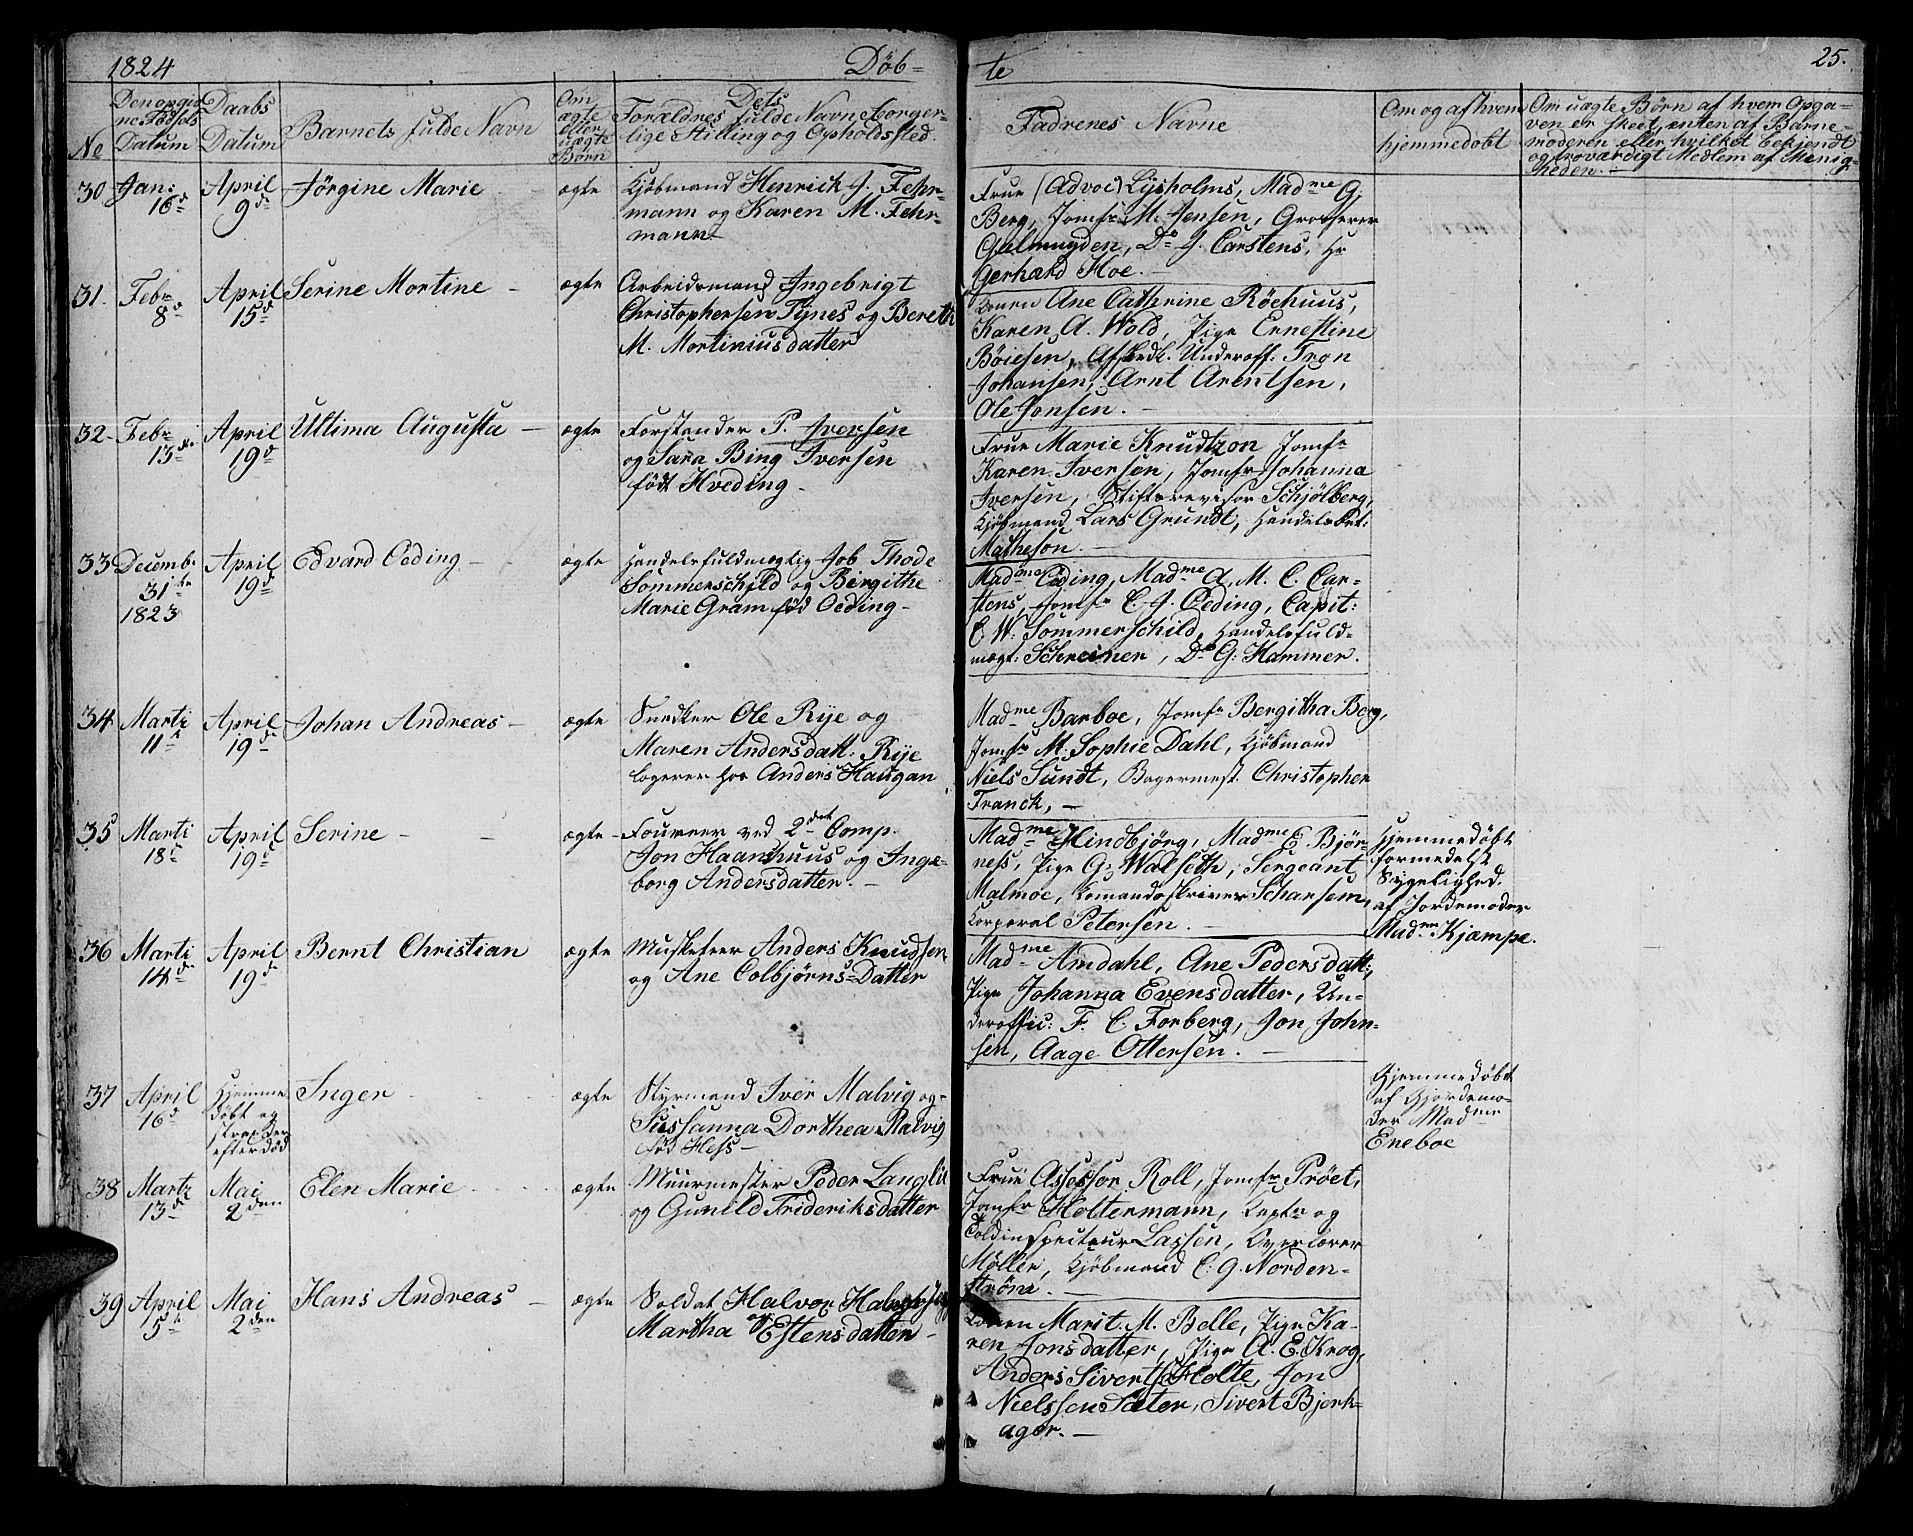 1824 Døb= te 25.
No
Den opgiv
ne Fødsels
Datum
Daabs
Datum
Barnets fulde Navn
Om
ægte
eller
uægte
Børn
Dets
Forældres fulde Navn borger-
lige Stilling og Opholdsted.
Fadrenes Navne
Om og af hvem
hjemmedøbt
Om uægte Børn af hvem Opga-
ven er skeet, enten af Barne-
moderen eller hvilket bekjendt
og troværdigt Medlem af Menig-
heden.-
30 Jan: 16d
April 9d
Jørgine Marie
ægte
Kjøbmand Henrick J. Fehr-
mann og Karen M. Fehr-
mann
Frue (Advoc) Lysholms, Madme G.
Berg, Jomfr M. Jensen, Grosserer
Gulmuyden, Do J. Carstens, Hr
Gerhard Hoe.-
31. Febr 8d
April 15d
Serine Mortine -
ægte
Arbeidsmand Ingebrigt
Christophersen Tynes og Bereth
M. Mortiniusdatter
Konen Ane Cathrine Röehuus,
Karen A. Wold, Pige Ernestine
Böiesen, Afskedk. Underoff: Tron
Johansen, Arnt Arentsen,
Ole Jonsen. -
32- Febr 13de
April 19d
Ultima Augusta -
ægte
Forstander P. Iversen
og Sara Bing Iversen
født Hveding -
Frue Marie Knudtzon Jomfr
Karen Iversen, Jomfr Johanna
Iversen, Stiftsrevisor Schjölberg,
Kjøbmand Lars Grundt, Handelsbet:
Matheson. -
33 Decemb. 31te 1823
April 19d
Edvard Oeding -
ægte
Handelsfuldmægtig Job Thode
Sommerschild og Birgithe
Marie Gram fød Oeding -
Madme Oeding, Madme A. M. C. Car-
stens, Jomfr C. J. Oeding, Capit:
C. W. Sommerschild, Handelsfuld-
mægt: Schreiner, Do G: Hammer.
34 Marti 11te
April 19de
Johan Andreas -
ægte
Snedker Ole Rye og
Maren Andersdatt: Rije
logerer hos Anders Haugan
Madme Barboe, Jomfr Bergitha Berg,
Jomfr M. Sophie Dahl, Kjøbmand
Niels Sundt, Bagermest Christopher
Franck, -
35 Marti 18d
April 19d
Serine - -
ægte -
Foureer ved 2det Comp.
Jon Haanshuus og Inge-
borg Andersdatter. -
Madme Hindbjörg, Madme E. Bjør-
ness, Pige G. Walseth, Sergeant
Malmoe, Komandoskriver Schansem,
Korporal Petersen. -
Hjemmedøbt
formedelst
Sygelighed.
af Jordemoder
Madme Kjampe.
36 Marti 14de
April 19de
Bernt Christian
ægte
Musketeer Anders Knudsen
og Ane Colbjørns=Datter
Madme Amdahl, Ane Pedersdatt:,
Pige Johanna Evensdatter, Un-
deroffic: F. C. Forberg, Jon John-
sen, Aage Ottersen. -
37 April 16d
Hjemme
døbt og
strax der
efter død
Inger
ægte
Styrmand Iver Malvig og-
Sussanna Dorthea Malvig
fød Hess -
Hjemmedøbt
af Gjordemo-
der Madme
Eneboe
38 Marti 13d
Mai 2den
Elen Marie
ægte
Muurmester Peder Langlie
og Gunild Frideriksdatter
Frue Assessor Roll, Jomfr Pröet,
Jomfr Holtermann, Captn og
Toldinspecteur Lassen, Overlærer
Möller, Kjøbmand C: G. Norden-
ström. -
39 April 5te
Mai 2den
Hans Andreas -
ægte
Soldat Halvor Halvorsen
Martha og Estensdatter -
Konen Marit M. Belle, Pige Ka-
ren Jonsdatter, Pige A. E. Krog,
Anders Sivertss Holte, Jon
Nielssen Sæter, Sivert Bjerk-
ager. -